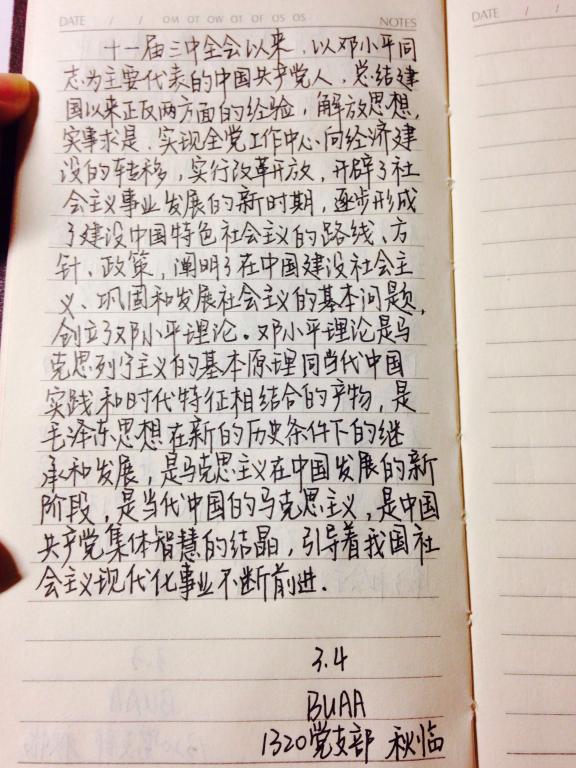 DATE / / ○M ○T ○W ○T ○F ○S ○S NOTES
DATE / /
十一届三中全会以来，以邓小平同
志为主要代表的中国共产党人，总结建
国以来正反两方面的经验，解放思想，
实事求是，实现全党工作中心向经济建
设的转移，实行改革开放，开辟了社
会主义事业发展的新时期，逐步形成
了建设中国特色社会主义的路线、方
针、政策，阐明了在中国建设社会主
义、巩固和发展社会主义的基本问题，
创立了邓小平理论。邓小平理论是马
克思列宁主义的基本原理同当代中国
实践和时代特征相结合的产物，是
毛泽东思想在新的历史条件下的继
承和发展，是马克思主义在中国发展的新
阶段，是当代中国的马克思主义，是中国
共产党集体智慧的结晶，引导着我国社
会主义现代化事业不断前进.
3.4
BUAA
1320党支部 秋临